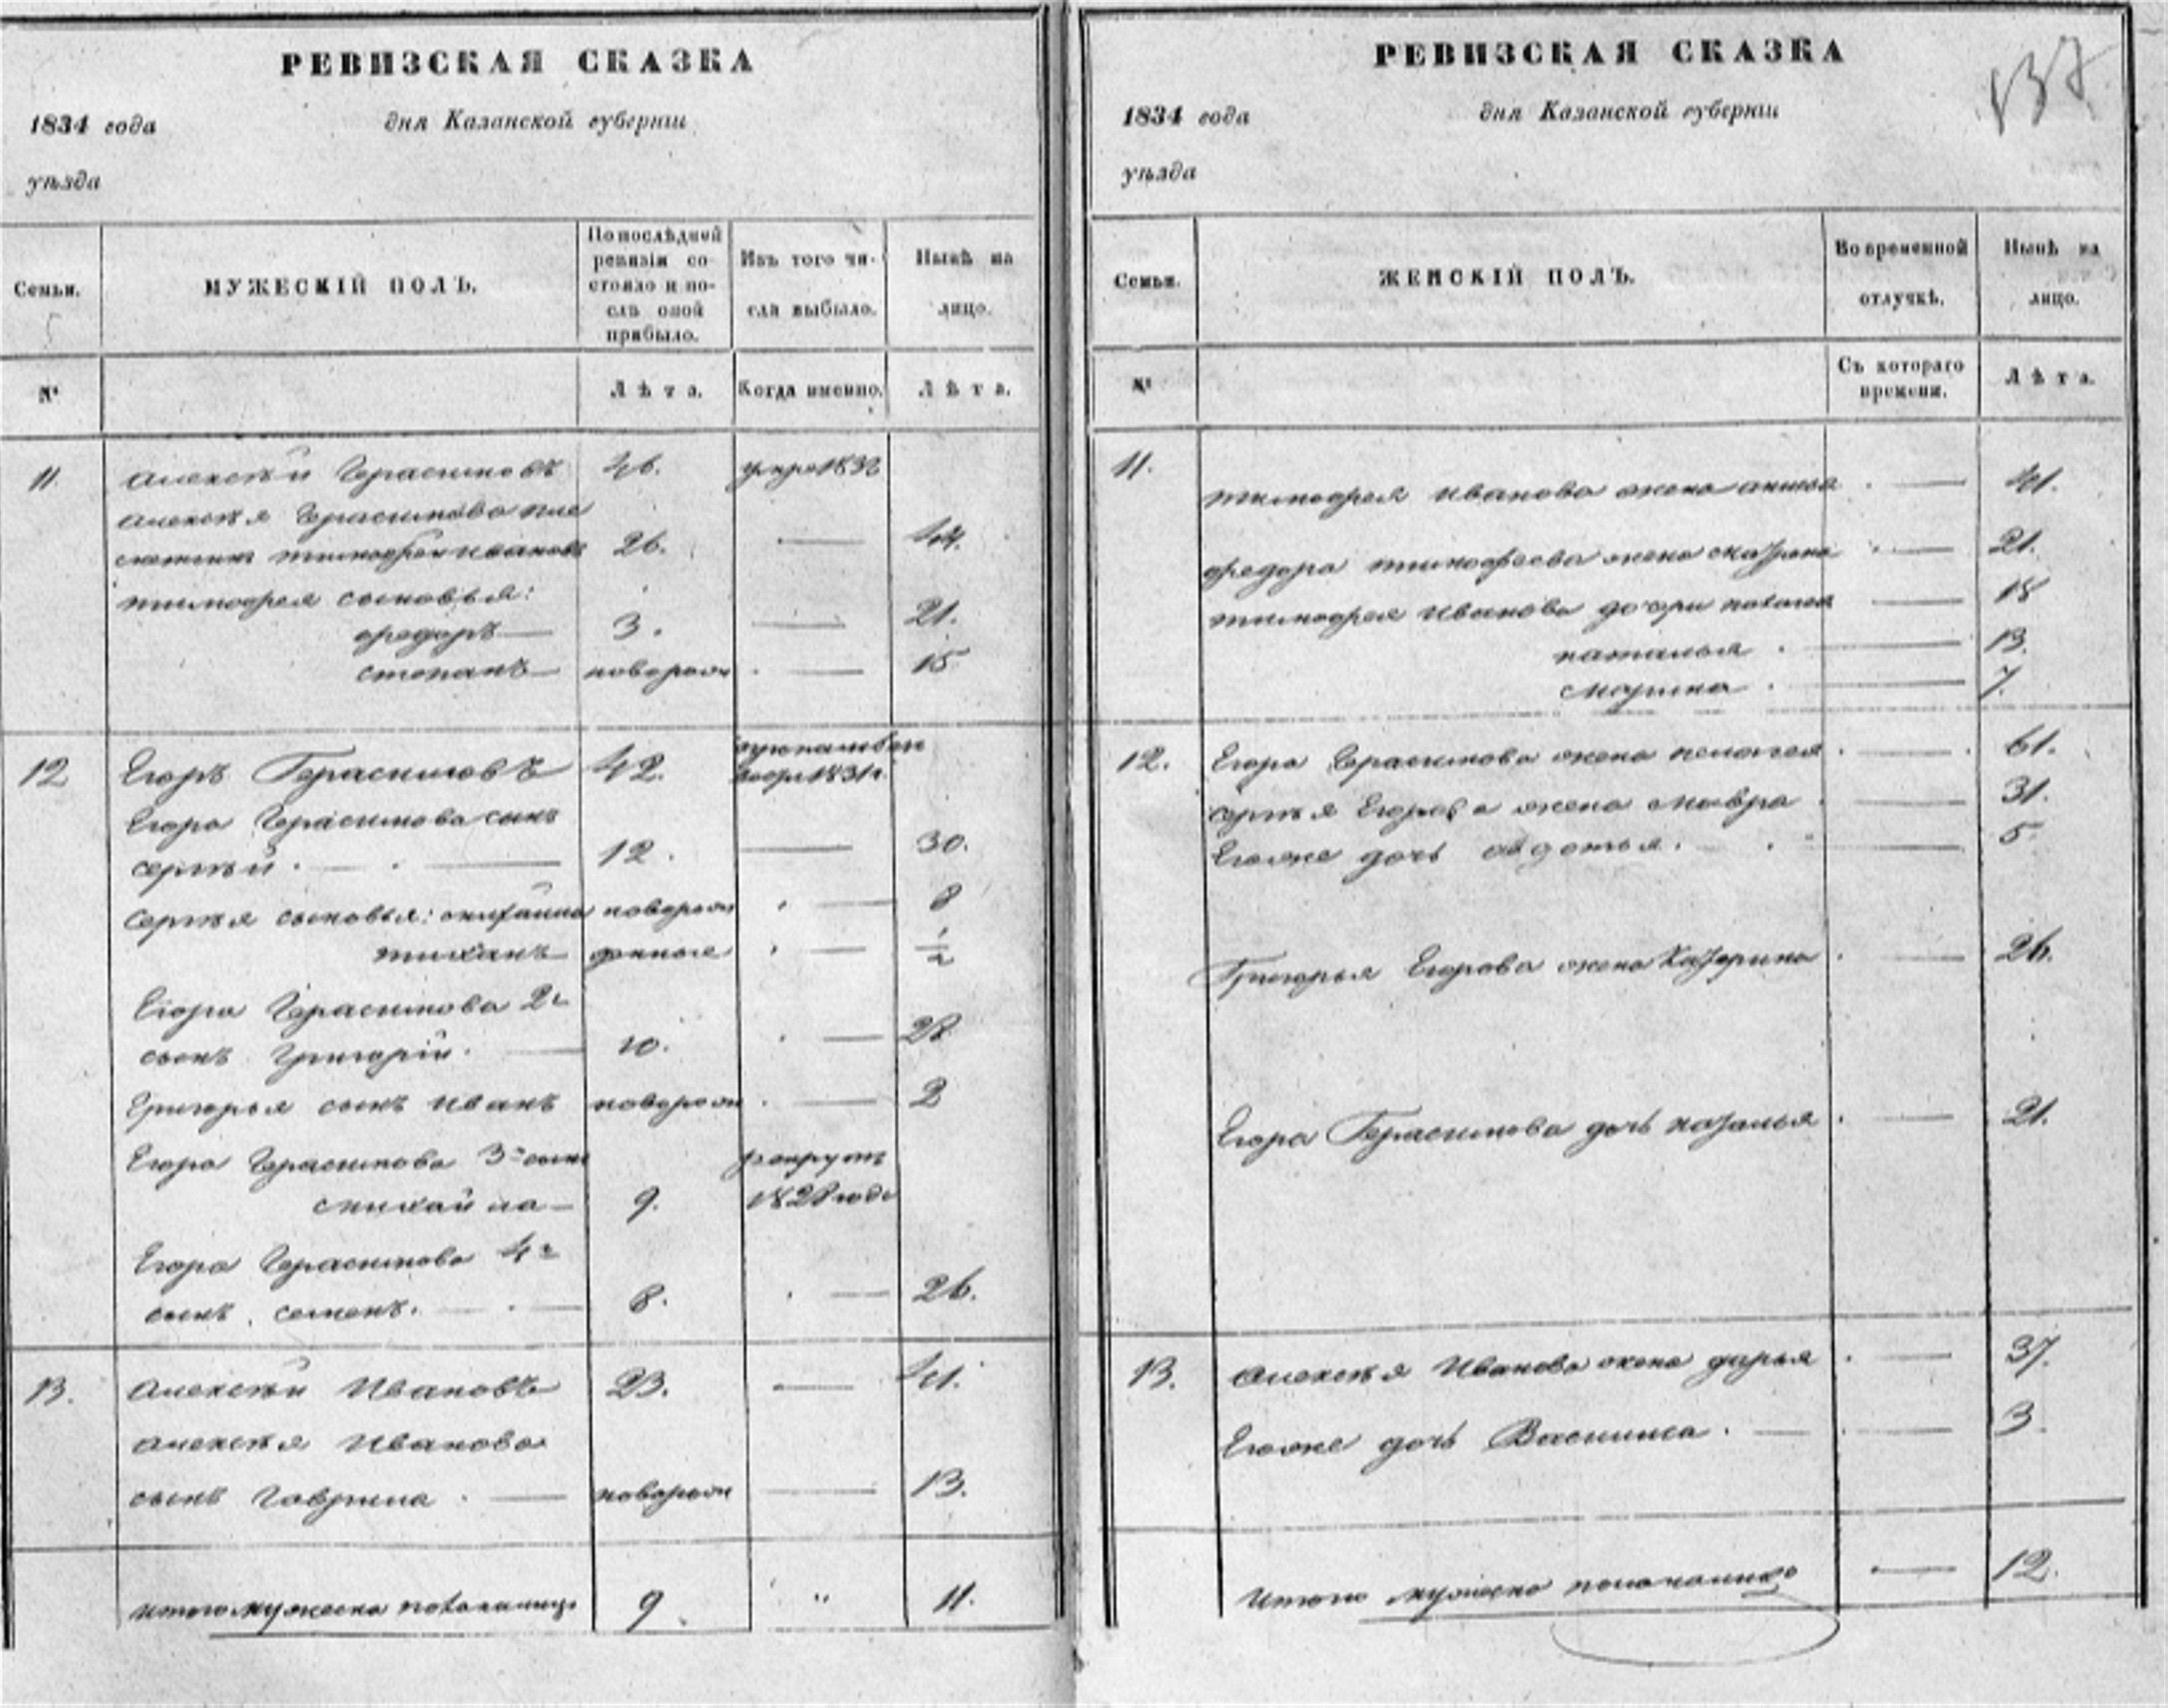 РЕВИЗСКАЯ СКАЗКА
1834 года дня Казанской губернiи
уѣзда
Семьи.
МУЖЕСКIЙ ПОЛЪ.
По послѣдней
ревизiи со-
стояло и по-
слѣ оной
прибыло.
Изъ того чи-
сла выбыло.
Нынѣ на
лицо.
№
Лѣта.
Когда именно.
Лѣта.
11. Алексѣй Герасимовъ 46. умре 1832
Алексѣя Герасимова пле
мянникъ тимофей ивановъ 26. — 44.
тимофея сыновья:
федоръ — 3. — 21.
степанъ — новорож — 15
12 Егоръ Герасимовъ 42. 1831г.
Егора Герасимова сынъ
сергѣй. — 12. — 30.
сергѣя сыновья: михайла новорож — 8
тиханъ — денные — 1/2
Егора Герасимова 2й
сынъ Григорiй. — 10. — 28
Григорья сынъ иванъ новорож — 2
Егора Герасимова 3й сынъ рекрутъ
михайла — 9. 1828 года
Егора Герасимова 4й
сынъ семенъ. — 8. — 26.
13. Алексѣй Ивановъ 23. — 41.
алексѣя Иванова
сынъ гаврила — новорож — 13.
итого мужеска пола налицо 9 " 11.
РЕВИЗСКАЯ СКАЗКА
137
1834 года дня Казанской губернiи
уѣзда
Семьи.
ЖЕНСКIЙ ПОЛЪ.
Во временной
отлучкѣ.
Нынѣ на
лицо.
№
Съ котораго
времени.
Лѣта.
11. тимофея иванова жена — 41.
федора тимофеева жена матрена — 21.
тимофея иванова дочери — 18
наталья — 13.
марина — 7.
12. Егора Герасимова жена пелагея — 61.
сергѣя Егорова жена мавра — 31.
Егоже дочь авдотья. — 5
Григорья Егорова жена Катерина — 26.
Егора Герасимова дочь наталья — 21.
13. Алексѣя Иванова жена дарья — 37.
Егоже дочь Василиса. — 3
Итого мужеска пола налицо — 12.